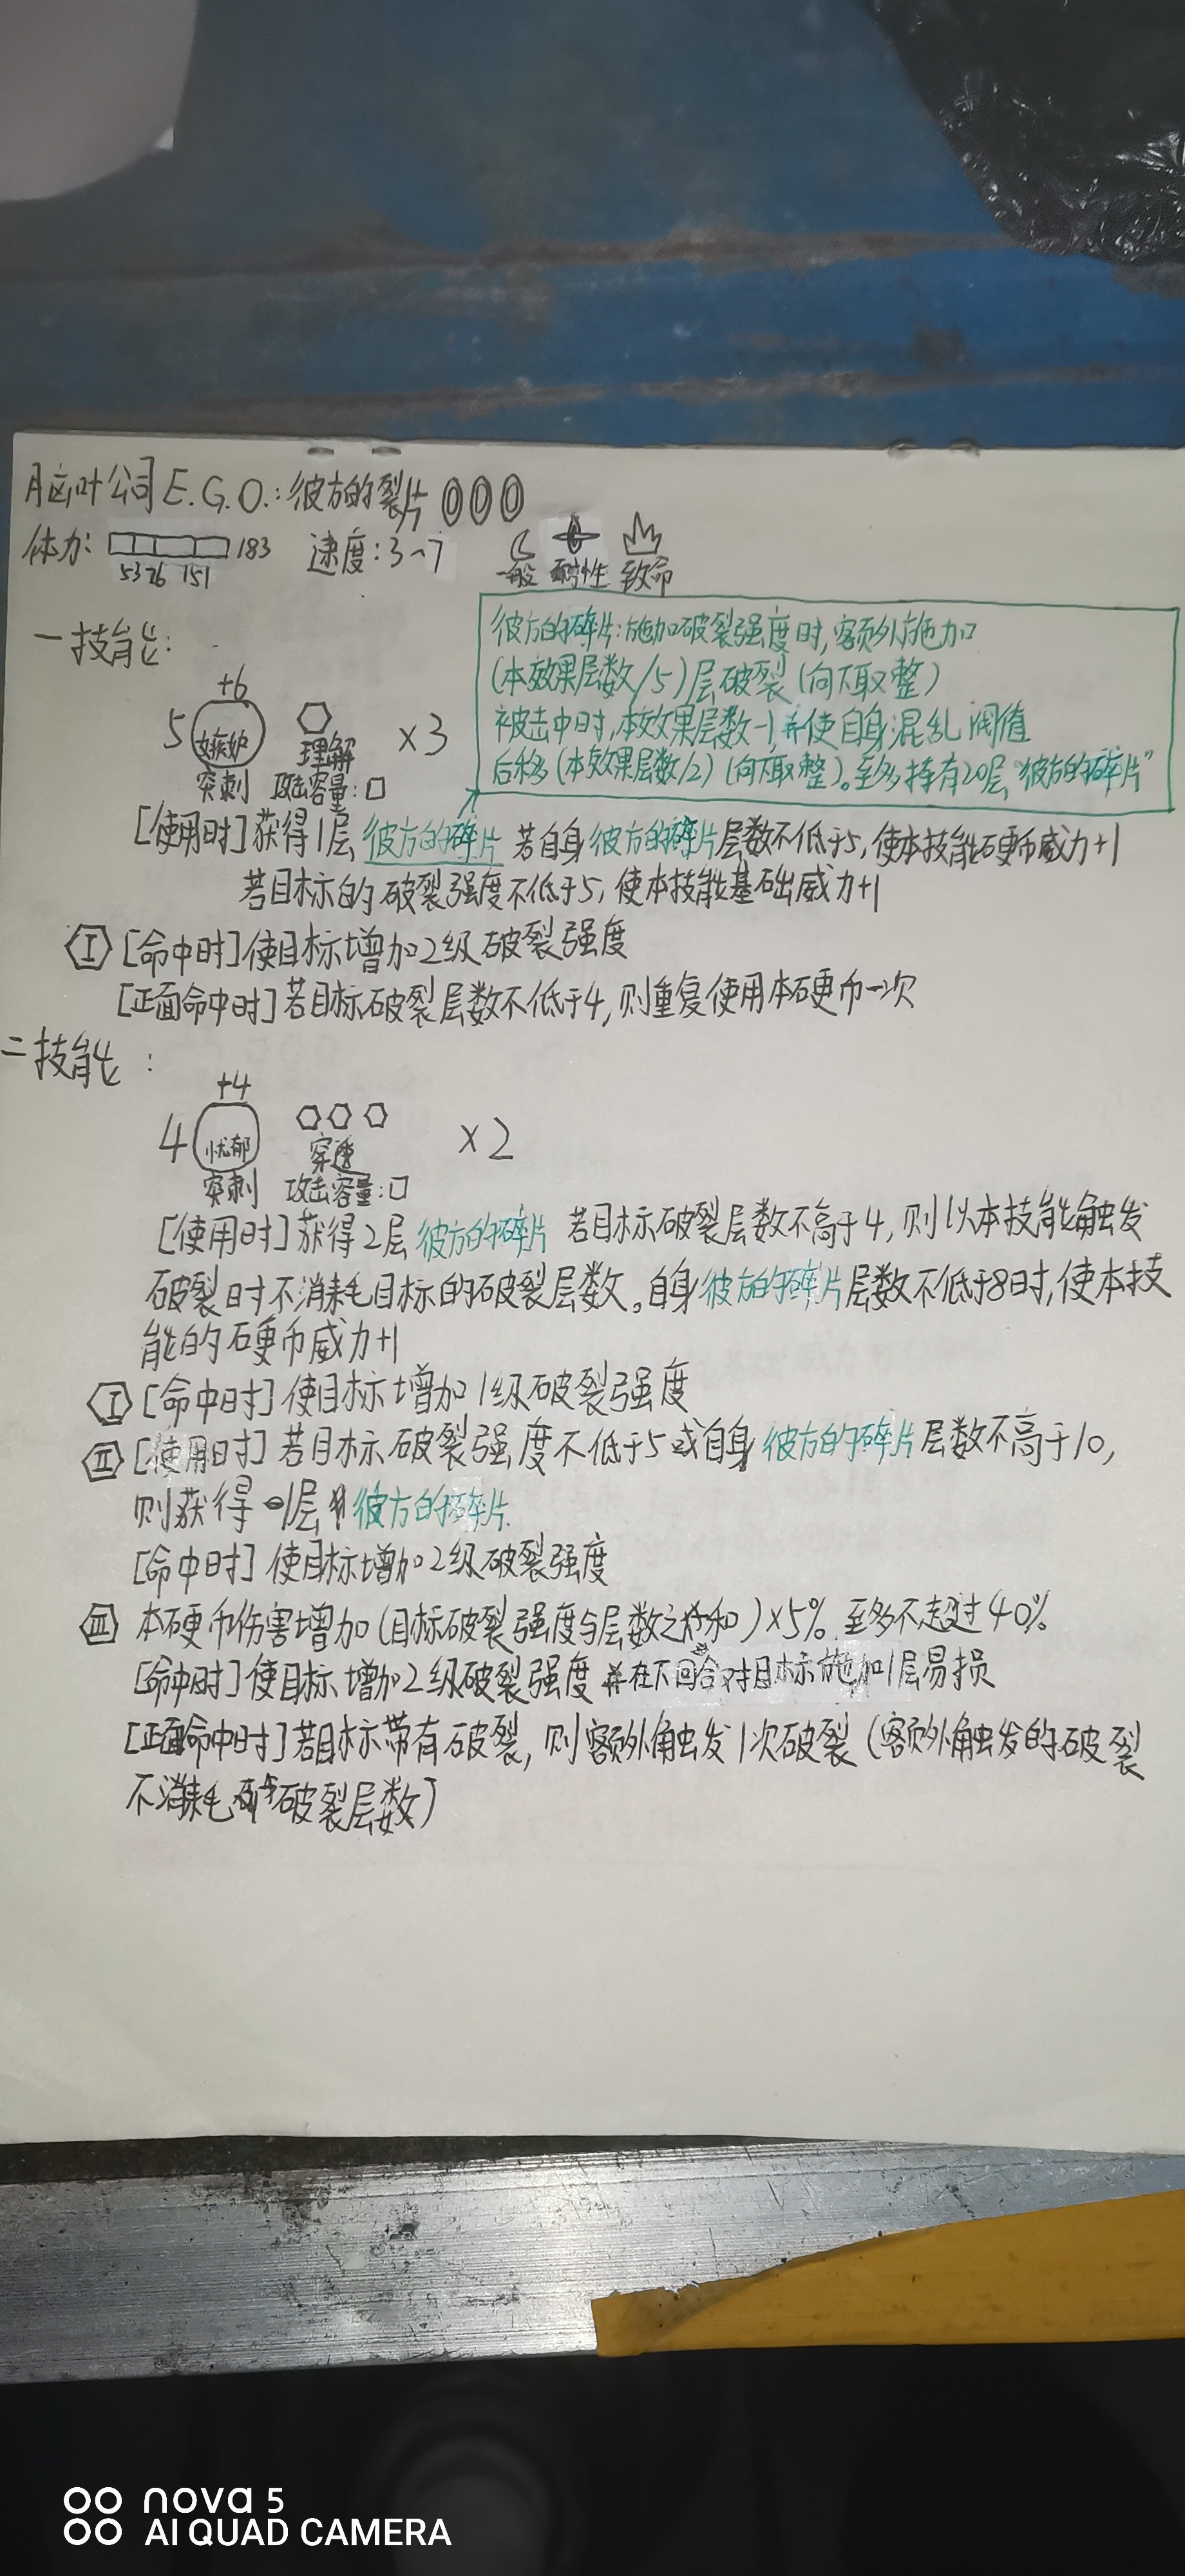 脑叶公司 E.G.O.：彼方的裂片 000
体力： 183 速度：3~7
53 76 151
一般 耐性 致命
彼方的碎片：施加破裂强度时，额外施加
(本效果层数/5)层破裂(向下取整)
被击中时，本效果层数-1，并使自身混乱阈值
后移(本效果层数/2)(向下取整)。至多持有20层“彼方的碎片”
一技能：
+6
5 嫉妒 理解 ×3
突刺 攻击容量：□
[使用时]获得1层彼方的碎片 若自身彼方的碎片层数不低于5，使本技能硬币威力+1
若目标的破裂强度不低于5，使本技能基础威力+1
Ⅰ [命中时]使目标增加2级破裂强度
[正面命中时]若目标破裂层数不低于4，则重复使用本硬币一次
二技能：
+4
4 忧郁 穿透 ×2
突刺 攻击容量：□
[使用时]获得2层彼方的碎片 若目标破裂层数不高于4，则以本技能触发
破裂时不消耗目标的破裂层数。自身彼方的碎片层数不低于8时，使本技
能的硬币威力+1
Ⅰ [命中时]使目标增加1级破裂强度
Ⅱ [使用时]若目标破裂强度不低于5或自身彼方的碎片层数不高于10，
则获得1层彼方的碎片.
[命中时]使目标增加2级破裂强度
Ⅲ 本硬币伤害增加(目标破裂强度与层数之和)×5% 至多不超过40%
[命中时]使目标增加2级破裂强度 并在下回合对目标施加1层易损
[正面命中时]若目标带有破裂，则额外触发1次破裂(额外触发的破裂
不消耗破裂层数)
nova 5
AI QUAD CAMERA